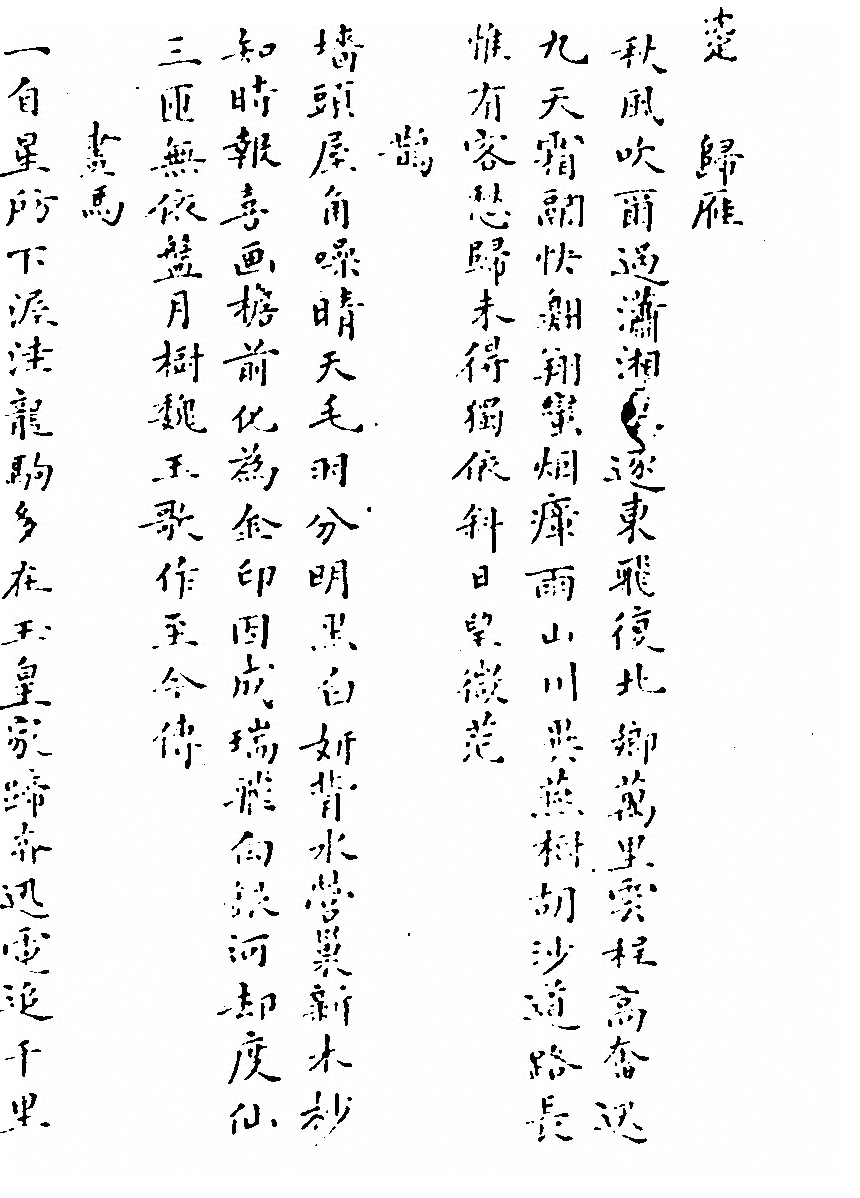 歸雁
秋風吹爾過瀟湘逐東飛復北鄉萬里雲程高奮迅
九天霜翮快翱翔蠻烟瘴雨山川異燕樹胡沙道路長
惟有客愁歸未得獨依斜日望微茫
鵲
墻頭屋角噪晴天毛羽分明黑白妍背水營巢新木杪
知時報喜画檐前化為金印因成瑞飛向銀河却度仙
三匝無依盤月樹魏王歌作至今傳
畫馬
一自星房下渥洼龍駒多在玉皇家蹄奔迅電追千里